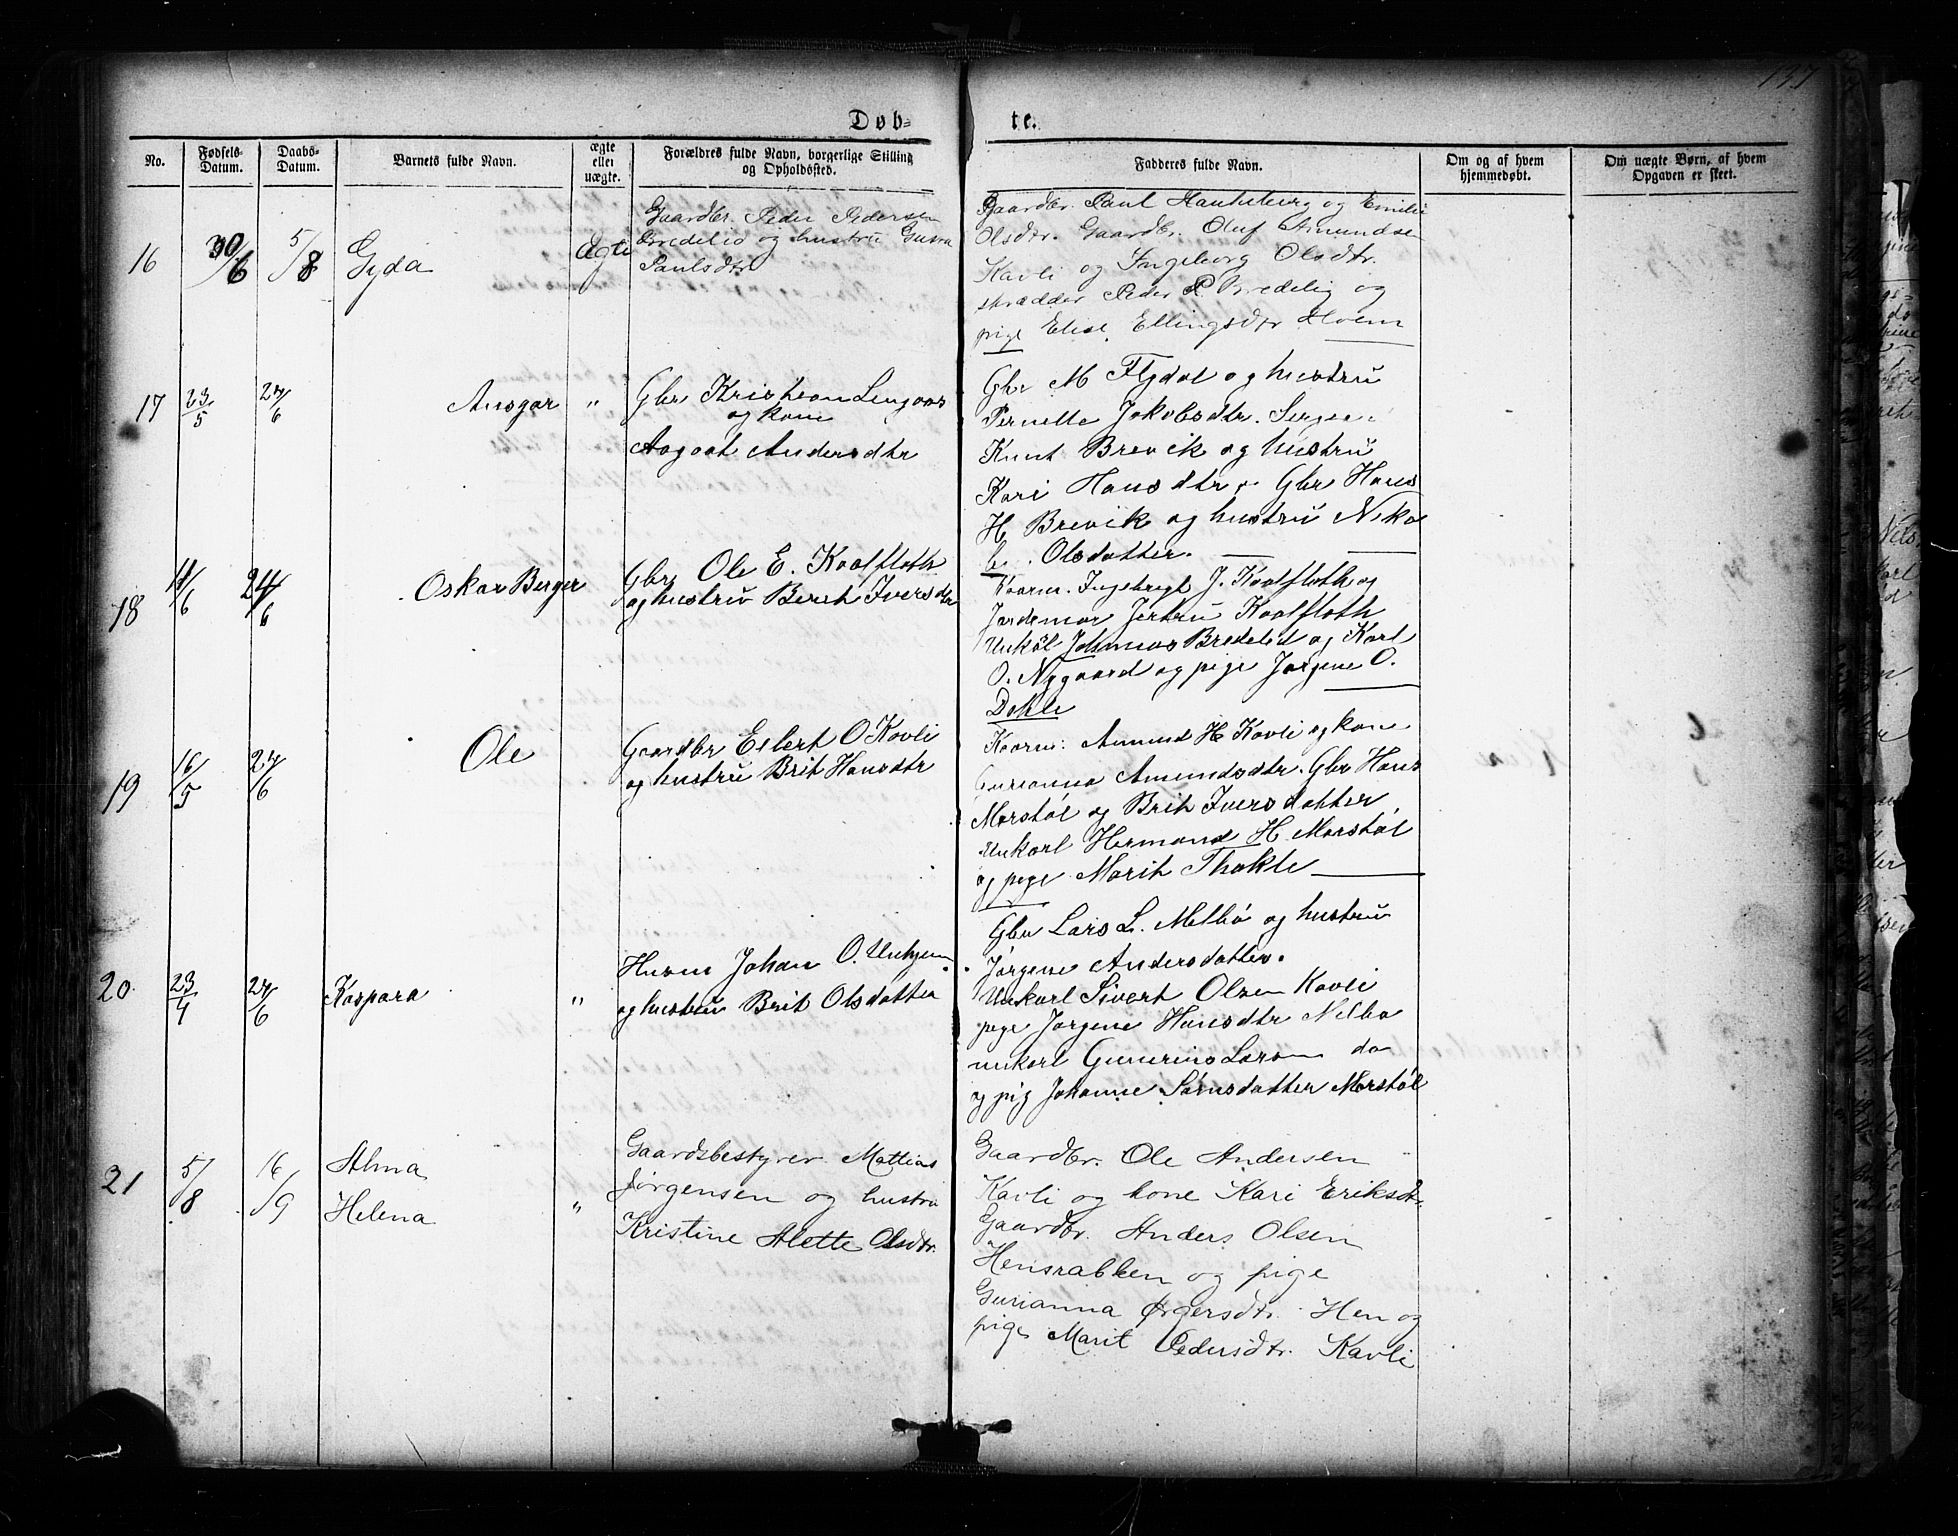 137
Døb-
te.
No.
Fødsels-
Datum.
Daabs-
Datum.
Barnets fulde Navn.
ægte
eller
uægte.
Forældres fulde Navn, borgerlige Stilling
og Opholdssted.
Fadderes fulde Navn.
Om og af hvem
hjemmedøbt.
Om uægte Børn, af hvem
Opgaven er skeet.
16
30/6
5/8
Gyda
Ægte
Gaardbr. Peder Pedersen
Bredelid og hustru
Paulsdtr
Gaardbr. Paul og Emilie
Olsdtr. Gaardbr. Oluf Amundse
Kavli og Ingeborg Olsdtr.
skrædder Peder P. Bredelig og
pige Elise Ellingsdtr Hoem
17
23/5
24/6
Ansgar
"
Gbr Kristian Lengaas
og kone
Aagaat Andersdtr
Gbr M Flydal og hustru
Pernelle Jakobsdtr.
Knut Brevik og hustru
Kari Hansdtr. Gbr Hans
H Brevik og hustru Nikol
Olsdatter.
18
24/6
Oskar Berger
Gbr Ole E. Kaalfloth
og hustru Beret Iversdtr
Kaarm. Ingebrigt J. Kaalfloth og
Jordemor Jertru Kaalfloth
Johannes Bredeled og Karl
O. Nygaard og pige Jørgene O.
Dahle
19
16/5
24/6
Ole
Gaardbr Eilert O Kavli
og hustru Brit Hansdtr
Kaarm: Amund H Kavli og kone
Gurianna Amundsdtr. Gbr Hans
Morstøl og Brit Iversdatter
Unkarl Hermand H. Morstøl
og pige Marit Thokle
20
23/4
24/6
Kaspara
"
Husm Johan O. Unhjem
og hustru Brit Olsdatter
Gbr Lars L. Melbø og hustru
Jørgene Andersdatter.
Unkarl Sivert Olsen Kavli
pige Jørgene Hansdtr Melbø
unkarl Gunerius Larsen do
og pig Johanne Sørnsdatter Morstøl
21
5/8
16/9
Alma
Helena
"
Gaardsbestyrer Mattias
Jørgensen og hustru
Kristine Alette Olsdtr.
Gaardbr. Ole Andersen
Kavli og kone Kari Eriksdtr.
Gaardbr. Anders Olsen
Hensrabben og pige
Gurianna Ørgersdtr. Hen og
pige Marit Pedersdtr. Kavli